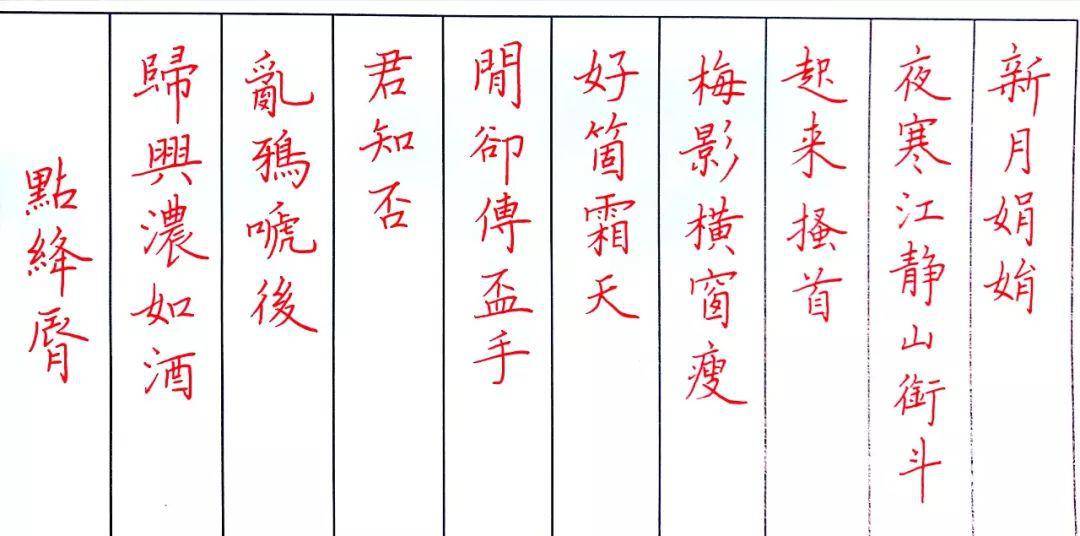 新月娟娟
夜寒江静山衔斗
起来搔首
梅影橫窗瘦
好箇霜天
閒卻傳盃手
君知否
亂鴉唬後
歸興濃如酒
點絳脣